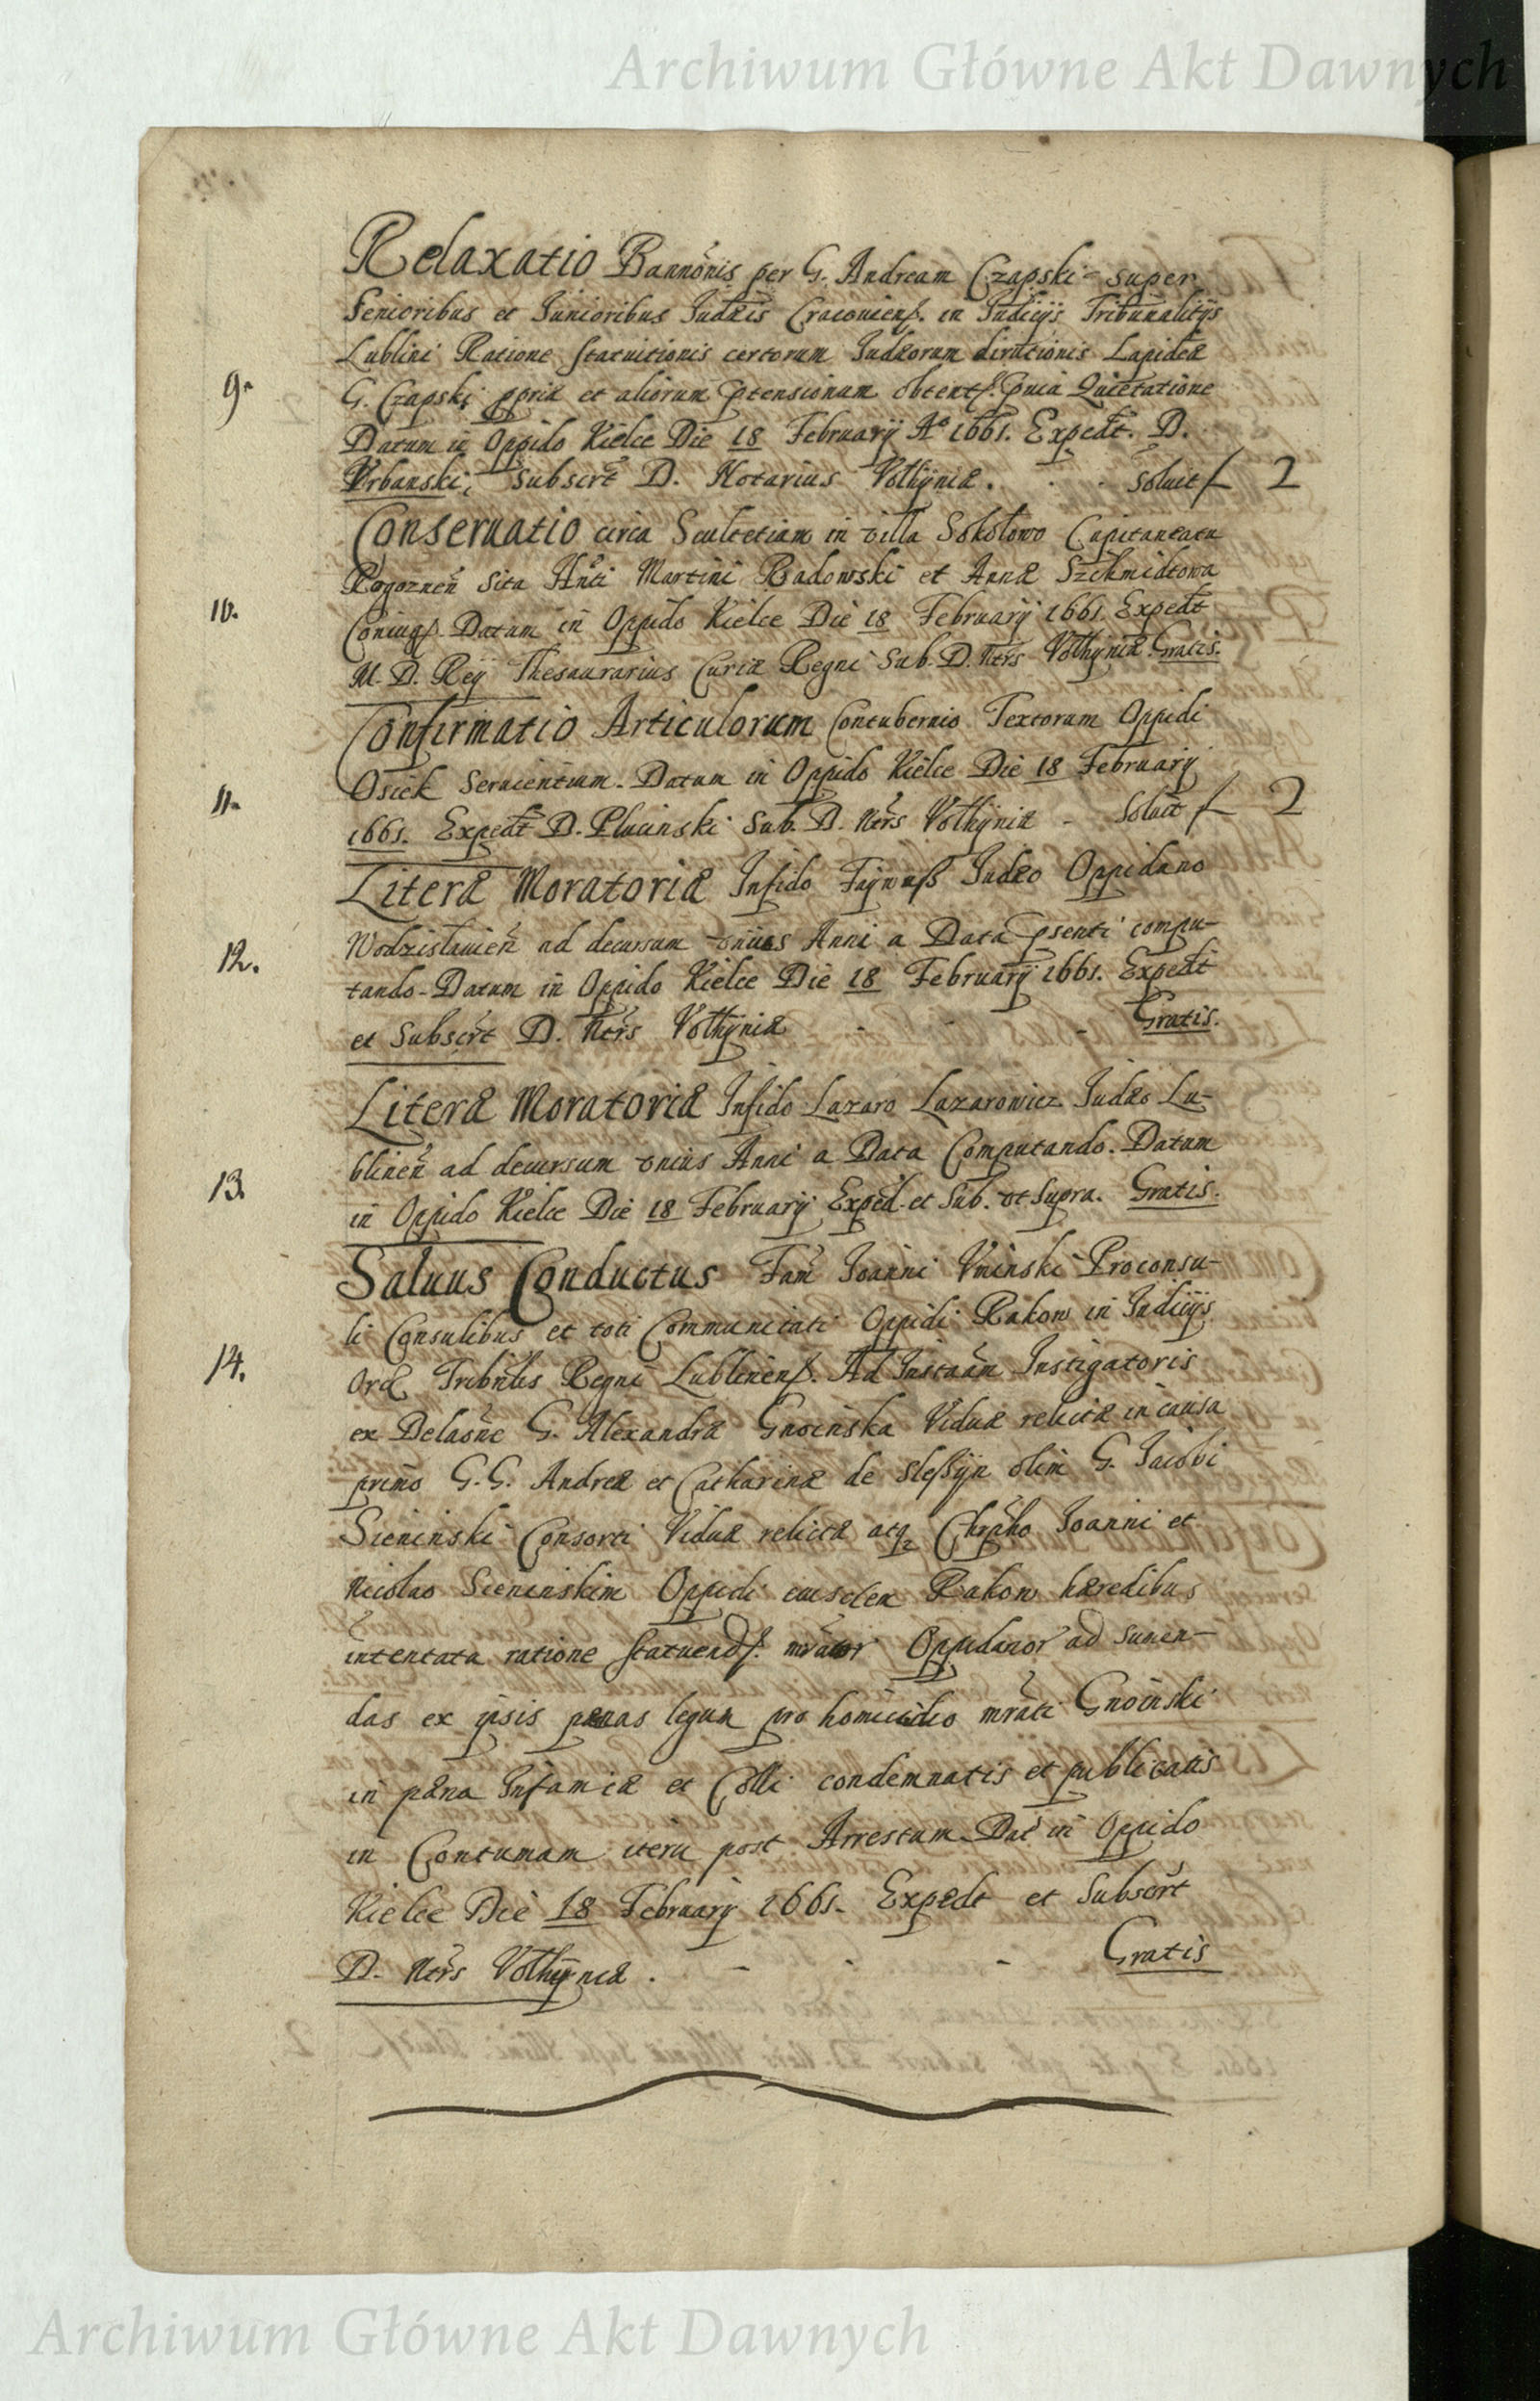 Archiwum Główne Akt Dawnych
Relaxatio Bannõnis per G. Andream Czapski super
Senioribus et Junioribus Judæis Cracouiens. in Judicijs Tribunalitijs
Lublini Ratione statuitionis certorum Judæorum dirutionis Lapideæ
9. G. Czapski ppriæ et aliorum ptensionum obtent. Quietatione
Datum in Oppido Kielce Die 18 February Aº 1661. Expedt. D.
Vrbanski, Subscrt D. Notarius Volhyniæ. Soluit f 2
Conseruatio circa Scultetiam in villa Sokołowo Capitaneatu
Rogoznen sita Hnti Martini Radowski et Annæ Szchmidtowa
10. Coniug. Datum in Oppido Kielce Die 18 February 1661. Expedt
M. D. Rey Thesaurarius Curiæ Regni Sub. D. Ntrs Volhyniæ Gratis.
Confirmatio Articulorum Contubernio Textorum Oppidi
Osiek Seruientium. Datum in Oppido Kielce Die 18 February
11. 1661. Expedt D. Placinski Sub. D. Ntrs Volhyniæ - Soluit f 2
Literæ Moratoriæ Infido Faywuß Judæo Oppidano
Wodzislauien ad decursum vnius Anni a Data psenti compu-
12. tando. Datum in Oppido Kielce Die 18 February 1661. Expedt
et Subscrt D. Ntrs Volhyniæ - - - Gratis.
Literæ Moratoriæ Infido Lazaro Lazarowicz Judæo Lu-
blinen ad decursum vnius Anni a Data Computando. Datum
13. in Oppido Kielce Die 18 February Exped. et Sub. vt Supra. Gratis.
Saluus Conductus Fam Joanni Vninski Proconsu-
li Consulibus et toti Communitati Oppidi Rakow in Judicijs
14. Ord Tribnlis Regni Lublinens. Ad Instaãm Instigatoris
ex Delaõne G. Alexandræ Gnoinska Viduæ relictæ in causa
primo G. G. Andreæ et Catharinæ de Sleßyn olim G. Jacobi
Sieninski Consorti Viduæ relictæ atq Chrpho Joanni et
Nicolao Sieninskim Oppidi eiusdem Rakow hæredibus
intentata ratione statuend. mrator Oppidanor ad sumen-
das ex ipsis pænas legum pro homicidio mrati Gnoinski
in pæna Infamiæ et Colli condemnatis et publicatis
in Contumam iteru post Arrestum Dat in Oppido
Kielce Die 18 February 1661. Expedt et Subscrt
D. Ntrs Volhyniæ . - - - Gratis
Archiwum Główne Akt Dawnych